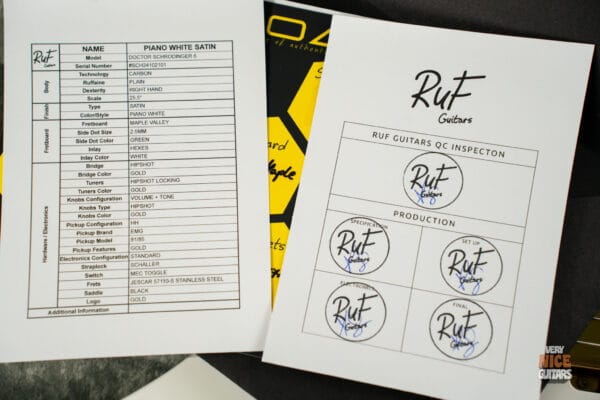 RuF
Guitars
NAME PIANO WHITE SATIN
Model DOCTOR SCHRODINGER 6
Serial Number #6SCH24102101
Body
Technology CARBON
Ruffaine PLAIN
Dexterity RIGHT HAND
Scale 25.5"
Finish
Type SATIN
Color/Style PIANO WHITE
Fretboard
Fretboard MAPLE VALLEY
Side Dot Size 2.0MM
Side Dot Color GREEN
Inlay HEXES
Inlay Color WHITE
Hardware / Electronics
Bridge HIPSHOT
Bridge Color GOLD
Tuners HIPSHOT LOCKING
Tuners Color GOLD
Knobs Configuration VOLUME + TONE
Knobs Type HIPSHOT
Knobs Color GOLD
Pickup Configuration HH
Pickup Brand EMG
Pickup Model 81/85
Pickup Features GOLD
Electronics Configuration STANDARD
Straplock SCHALLER
Switch MEC TOGGLE
Frets JESCAR 57110-S STAINLESS STEEL
Saddle BLACK
Logo GOLD
Additional Information
of authent
ard
Maple
ts
RuF
Guitars
RUF GUITARS QC INSPECTON
RuF
Guitars
PRODUCTION
SPECIFICATION
RuF
Guitars
SET UP
RuF
Guitars
ELECTRONICS
RuF
Guitars
FINAL
RuF
Guitars
VERY
NICE
GUITARS